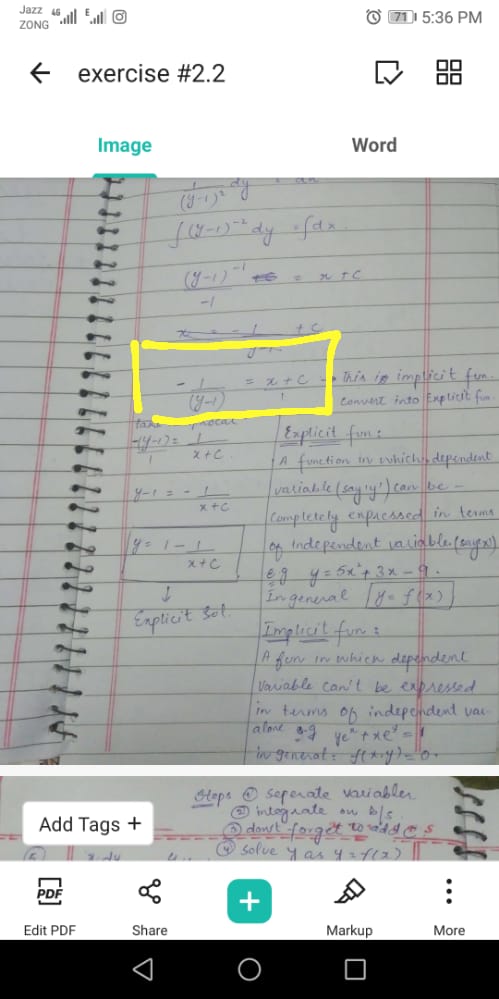 Jazz 4G E
ZONG
71 5:36 PM
exercise #2.2
Image Word
1 dy = dx
(y-1)²
∫(y-1)⁻² dy = ∫dx
(y-1)⁻¹ = x + C
-1
x = - 1 + C
y-1
- 1 = x + C → This is implicit fun.
(y-1) 1 convert into Explicit fun.
take
-(y-1) = 1
1 x+C
y-1 = - 1
x+C
y = 1 - 1
x+C
↓
Explicit Sol.
Explicit fun:
A function in which dependent
variable (say 'y') can be
completely expressed in terms
of independent variable (say x)
e.g y = 5x² + 3x - 9.
In general y = f(x)
Implicit fun:
A fun in which dependent
variable can't be expressed
in terms of independent var
alone e.g yeˣ + xeʸ = 1
in general: f(x,y) = 0.
Steps ① seperate variables
② integrate on b/s
③ don't forget to add
④ solve y as y = f(x)
Add Tags +
PDF
Edit PDF Share Markup More